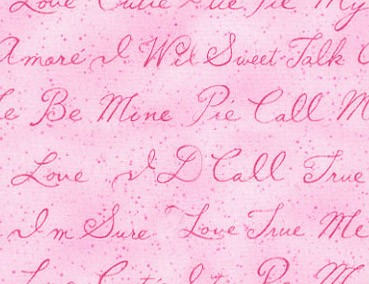 Love Cutie Pie My
Amore I Wil Sweet Talk
Be Mine Pie Call M
Love I D Call True
Im Sure Love True Me
Love Cutie Be M